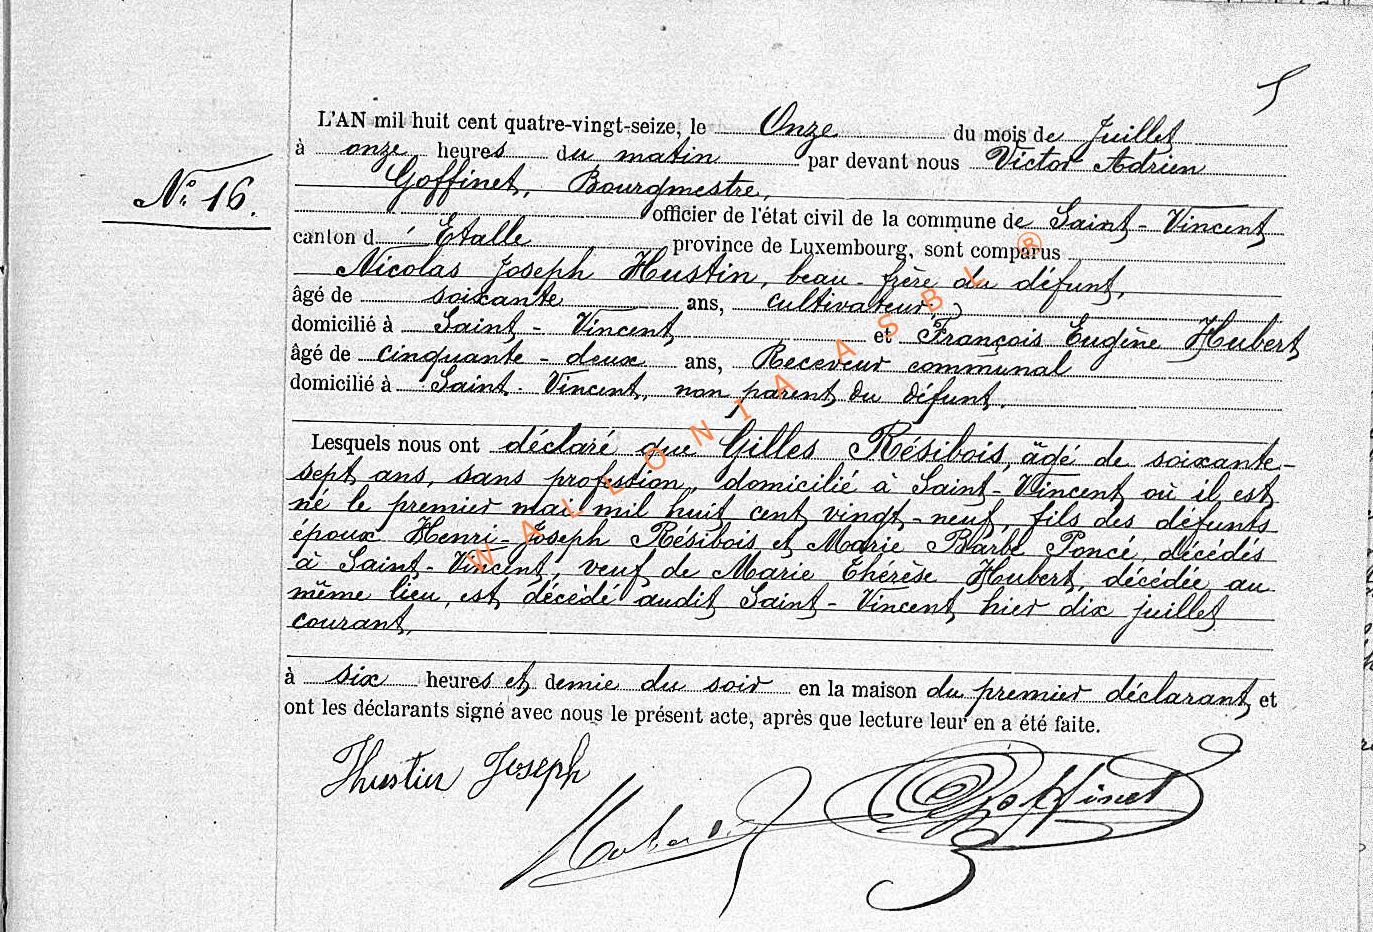 L'AN mil huit cent quatre-vingt-seize, le Onze du mois de Juillet
à onze heures du matin par devant nous Victor Adrien
N° 16.
Goffinet, Bourgmestre,
officier de l'état civil de la commune de Saint-Vincent
canton d' Etalle province de Luxembourg, sont comparus
Nicolas Joseph Hustin, beau-frère du défunt,
âgé de soixante ans, cultivateur,
domicilié à Saint-Vincent et François Eugène Hubert
âgé de cinquante-deux ans, Receveur communal
domicilié à Saint-Vincent, non parent du défunt.
Lesquels nous ont déclaré que Gilles Résibois, âgé de soixante-
sept ans, sans profession, domicilié à Saint-Vincent où il est
né le premier mai mil huit cent vingt-neuf, fils des défunts
époux Henri-Joseph Résibois et Marie Barbe Poncé, décédés
à Saint-Vincent, veuf de Marie Thérèse Hubert, décédée au
même lieu, est décédé audit Saint-Vincent hier dix juillet
courant,
à six heures et demie du soir en la maison du premier déclarant et
ont les déclarants signé avec nous le présent acte, après que lecture leur en a été faite.
Hustin Joseph
Hubert
Goffinet
WALLONIA ASBL ®